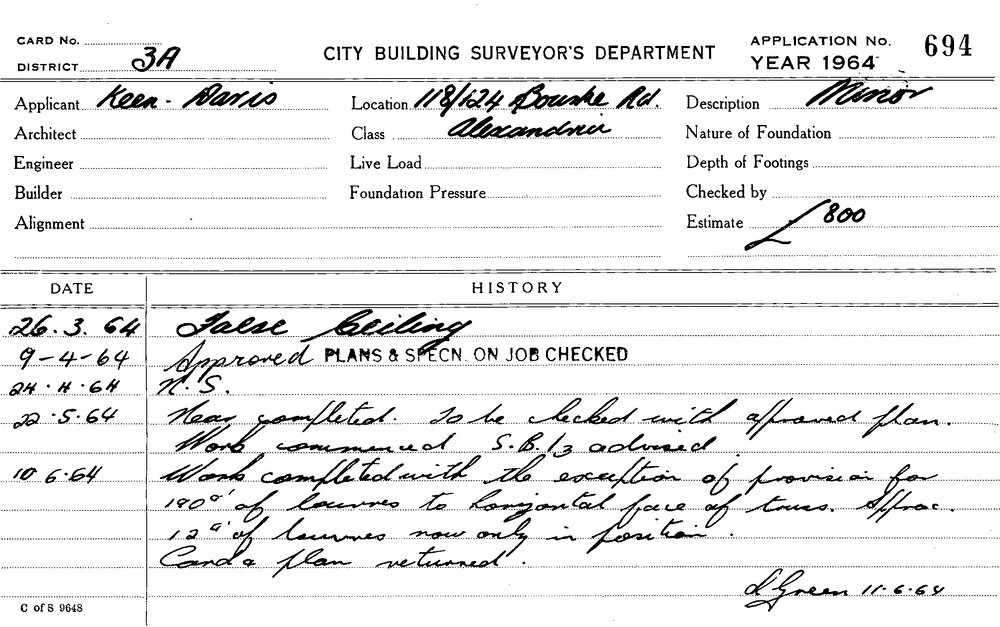 CARD No.
CITY BUILDING SURVEYOR'S DEPARTMENT
APPLICATION No. 694
DISTRICT 3A
YEAR 1964
Applicant Keen-Davis
Location 118/124 Bourke Rd.
Description Minor
Architect
Class Alexandria
Nature of Foundation
Engineer
Live Load
Depth of Footings
Builder
Foundation Pressure
Checked by
Alignment
Estimate £800
DATE HISTORY
26.3.64 False Ceiling
9-4-64 Approved PLANS & SPECN. ON JOB CHECKED
24.4.64 N.S.
22.5.64 Near completed. To be checked with approved plan.
Work commenced S.B.13 advised
10 6.64 Work completed with the exception of provision for
190□' of louvres to horizontal face of truss. Approx.
12□' of louvres now only in position.
Card & plan returned.
Green 11.6.64
C of S 9648